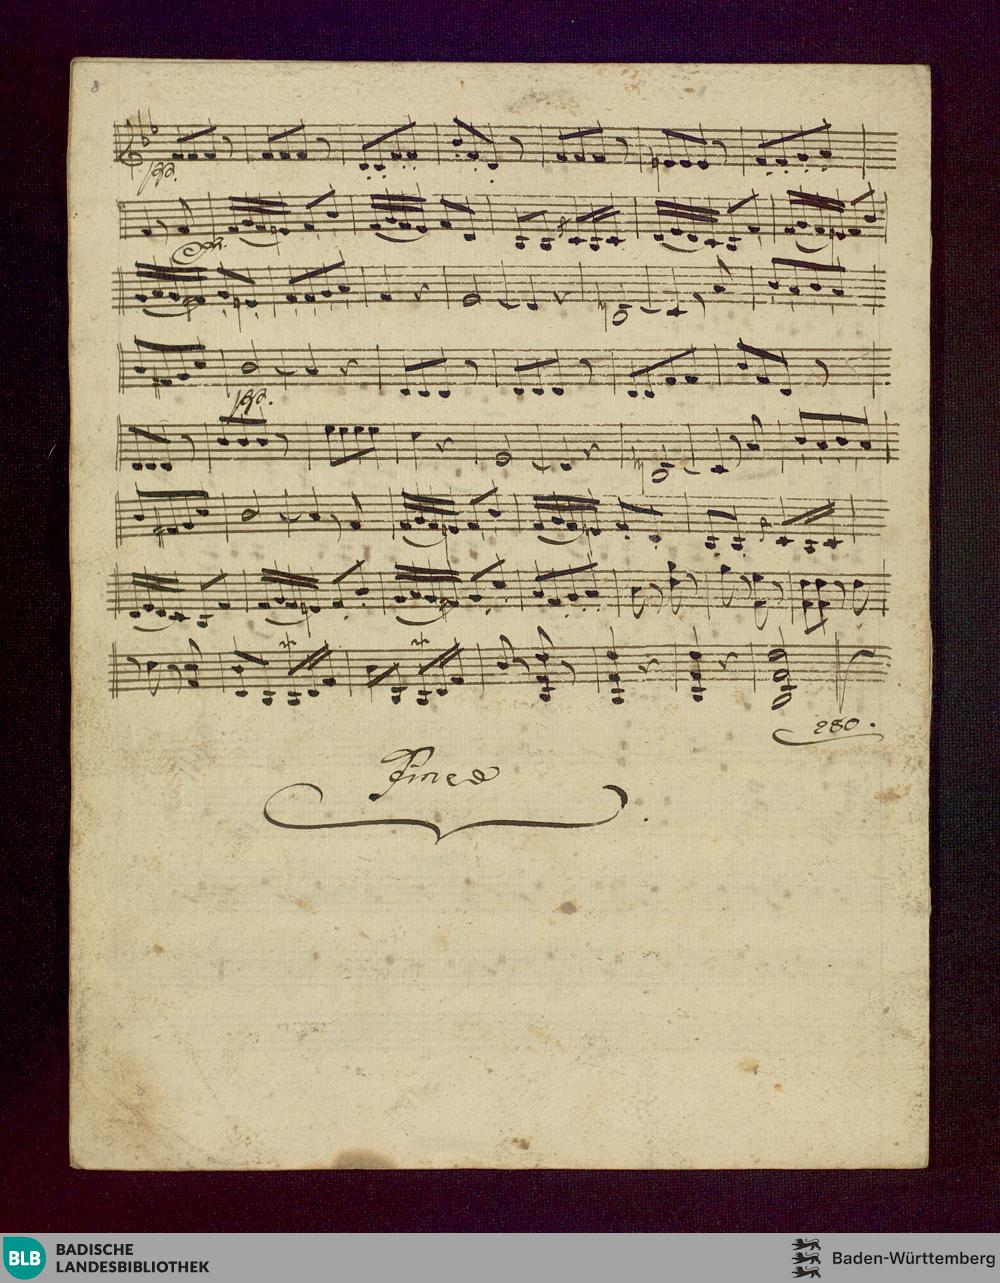 8
pp.
pp.
280.
Fine
BLB BADISCHE
LANDESBIBLIOTHEK
Baden-Württemberg